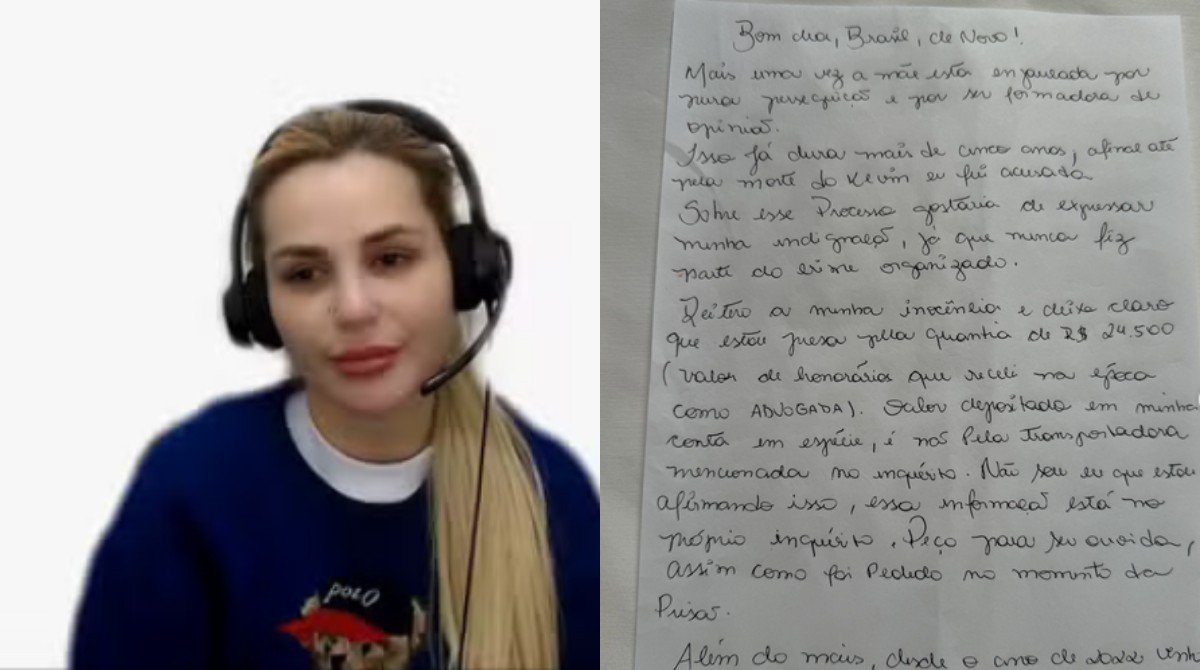 POLO
Bom dia, Brasil, de Novo!
Mais uma vez a mãe está enjaulada por
pura perseguiçã e por ser formadora de
opiniã.
Isso já dura mais de cinco anos, afinal até
pela morte do Kevin eu fui acusada
Sobre esse Processo gostaria de expressar
minha indignaçã, já que nunca fiz
parte do crime organizado.
Reitero a minha inocência e deixo claro
que estou presa pela quantia de R$ 24.500
(valor de honorários que recebi na época
como ADVOGADA). Valor depositado em minha
conta em espécie, e nã pela transportadora
mencionada no inquérito. Não sou eu que estou
afirmando isso, essa informaçã está no
próprio inquérito. Peço para ser ouvida,
assim como foi Pedido no momento da
Prisã.
Além do mais, desde o ano de